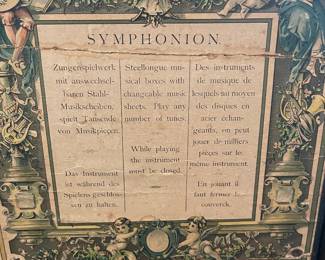 SYMPHONION.
Zungenspielwerk
mit auswechsel-
baren Stahl-
Musikscheiben,
spielt Tausende
von Musikpiecen.
Das Instrument
ist während des
Spielens geschlos
sen zu halten.
Steeltongue mu-
sical boxes with
changeable music
sheets. Play any
number of tunes.
While playing
the instrument
must be closed.
Des instruments
de musique de
lesquels au moyen
des disques en
acier échan-
geants, on peut
jouer de milliers
pièces sur le
même instrument.
En jouant il
faut fermer
couverck.